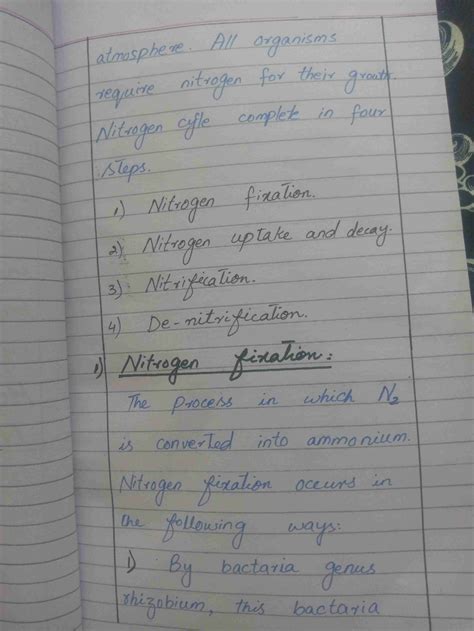 atmosphere. All organisms
require nitrogen for their growth.
Nitrogen cyfle complete in four
steps.
1) Nitrogen fixation.
2) Nitrogen uptake and decay.
3) Nitrification.
4) De-nitrification.
1) Nitrogen fixation:
The process in which N₂
is converted into ammonium.
Nitrogen fixation oceurs in
the following ways:
1) By bactaria genus
rhizobium, this bactaria